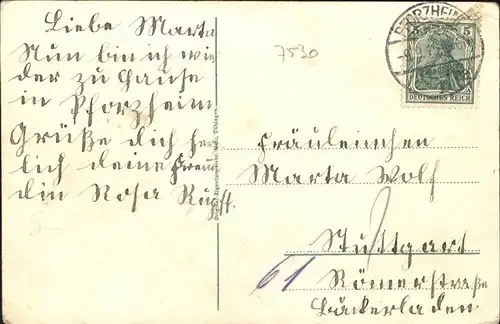 Liebe Marta
Nun bin ich wie
der zu Hause
in Pforzheim
Grüße dich herz
lich deine Freun
din Rosa
7530
PFORZHEIM
5 5
DEUTSCHES REICH
Fräuleinchen
Marta Wolf
Stuttgart
61 Römerstraße
Bäckerladen.